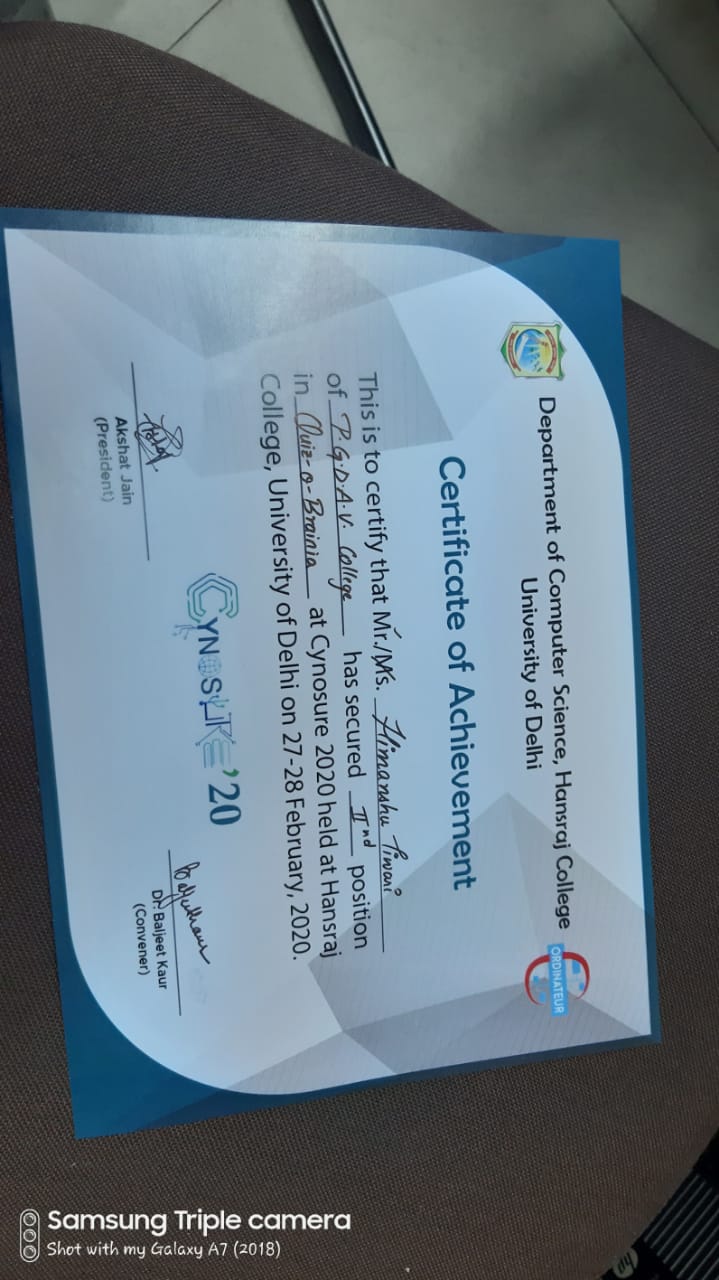 Department of Computer Science, Hansraj College
University of Delhi
ORDINATEUR
Certificate of Achievement
This is to certify that Mr./Ms. Himanshu Tiwari
of P.G.D.A.V. College has secured IInd position
in Quiz-o-Brainia at Cynosure 2020 held at Hansraj
College, University of Delhi on 27-28 February, 2020.
CYNOSURE'20
Akshat Jain
(President)
Baljeet Kaur
Dr. Baljeet Kaur
(Convener)
Samsung Triple camera
Shot with my Galaxy A7 (2018)
hp